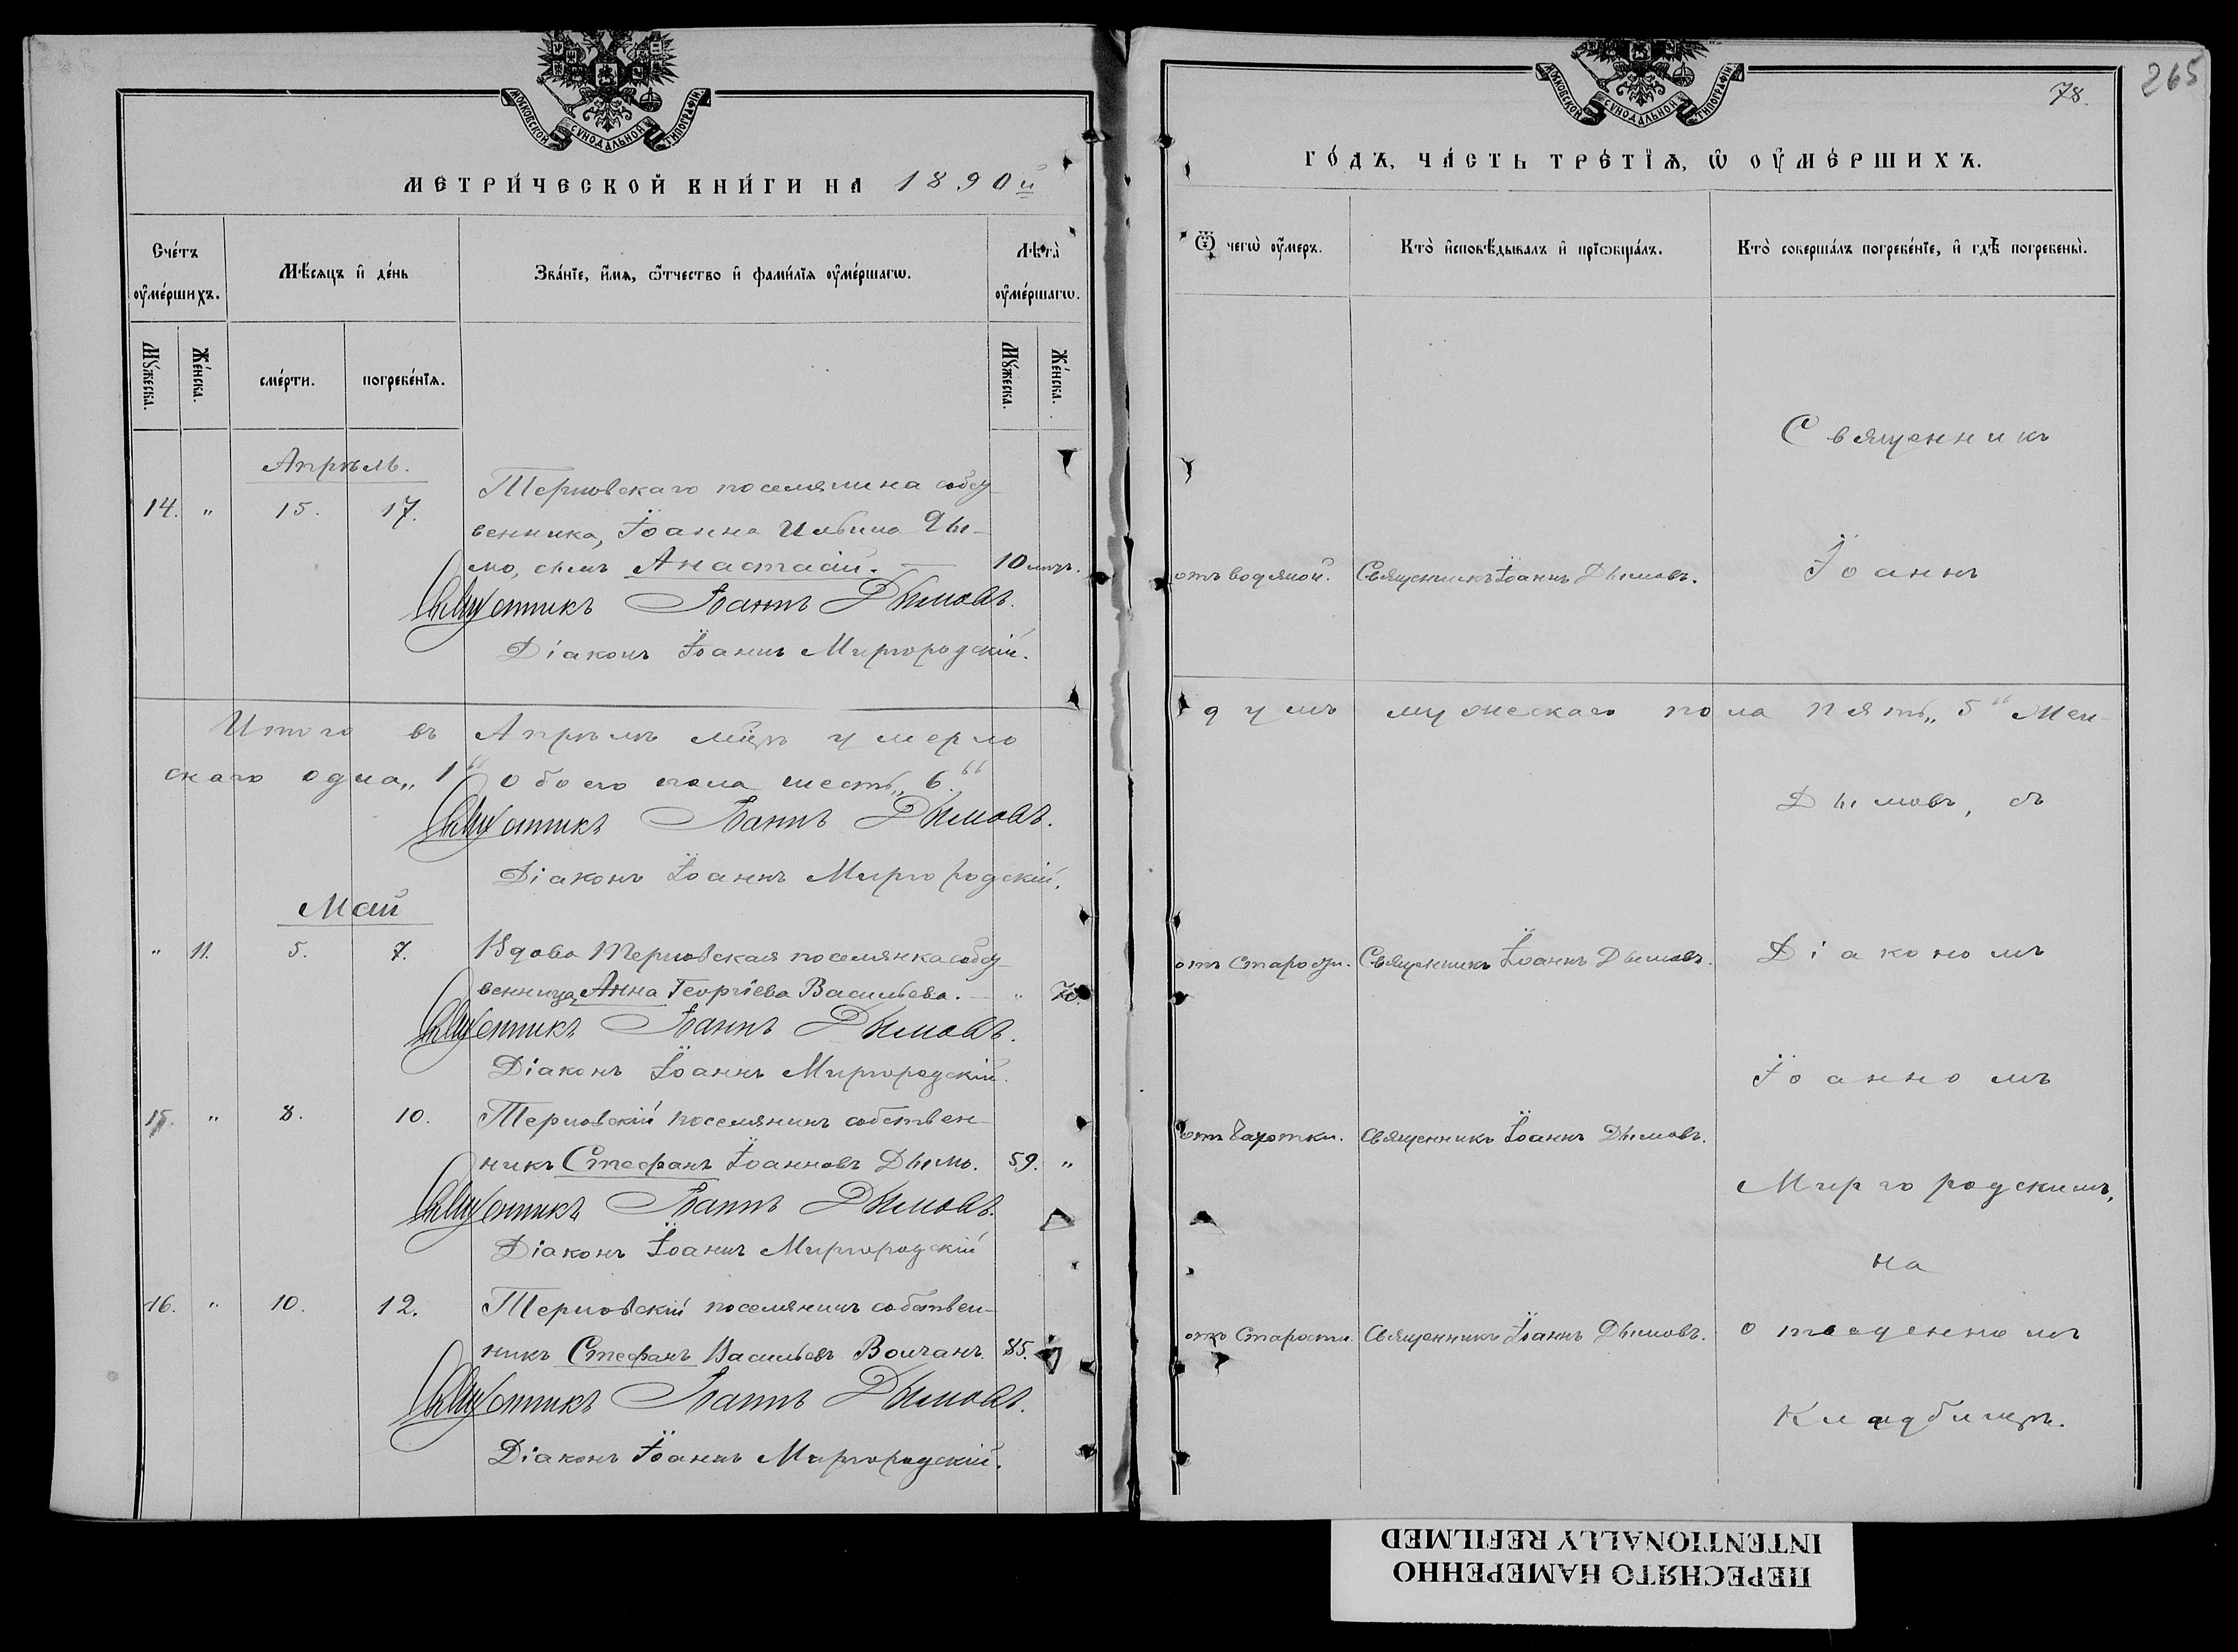 МОСКОВСКОЙ СУНОДАЛЬНОЙ ТИПОГРАФІИ
МЕТРИ́ЧЕСКОЙ КНИ́ГИ НА 1890й
Сче́тъ оу҆ме́ршихъ.
Мѣ́сяцъ и҆ де́нь
Зва́нїе, и҆́мѧ, ѻ҆́тчество и҆ фами́лїѧ оу҆ме́ршагѡ.
Лѣта̀ оу҆ме́ршагѡ.
Мꙋ́жеска. Же́нска.
сме́рти. погребе́нїѧ.
Мꙋ́жеска. Же́нска.
Апрѣль.
14. " 15. 17. Терновскаго поселянина собст-
венника, Іоанна Ильина Ды-
мо, сынъ Анастасій. — 10 мѣс.
Священникъ Іоаннъ Дымовъ.
Діаконъ Іоаннъ Миргородскій.
Итого въ Апрѣлѣ мцѣ умерло
скаго одна „1“ Обоего пола шесть „6“
Священникъ Іоаннъ Дымовъ.
Діаконъ Іоаннъ Миргородскій.
Май
" 11. 5. 7. Вдова Терновская поселянка собст-
венница, Анна Георгіева Васильева. — "
Священникъ Іоаннъ Дымовъ.
Діаконъ Іоаннъ Миргородскій.
15. " 8. 10. Терновскій поселянинъ собствен-
никъ Стефанъ Іоанновъ Дымо. 59. "
Священникъ Іоаннъ Дымовъ.
Діаконъ Іоаннъ Миргородскій
16. " 10. 12. Терновскій поселянинъ собствен-
никъ Стефанъ Васильевъ Волчанъ. 85.
Священникъ Іоаннъ Дымовъ.
Діаконъ Іоаннъ Миргородскій.
265
78.
МОСКОВСКОЙ СУНОДАЛЬНОЙ ТИПОГРАФІИ
ГО́ДЪ, ЧА́СТЬ ТРЕ́ТЇѦ, Ѡ҆ ОУ҆МЕ́РШИХЪ.
Ѿ чегѡ̀ оу҆́меръ.
Кто̀ и҆сповѣ́дывалъ и҆ прїѡбща́лъ.
Кто̀ соверша́лъ погребе́нїе, и҆ гдѣ̀ погребены̀.
Священникъ
отъ водяной. Священникъ Іоаннъ Дымовъ. Іоаннъ
душъ мужескаго пола пять „5“ Жен-
Дымовъ, съ
отъ старости. Священникъ Іоаннъ Дымовъ. Діакономъ
Іоанномъ
отъ чахотки. Священникъ Іоаннъ Дымовъ.
Миргородскимъ,
на
отъ старости. Священникъ Іоаннъ Дымовъ. отведенномъ
Кладбищѣ.
ПЕРЕСНЯТО НАМЕРЕННО
INTENTIONALLY REFILMED